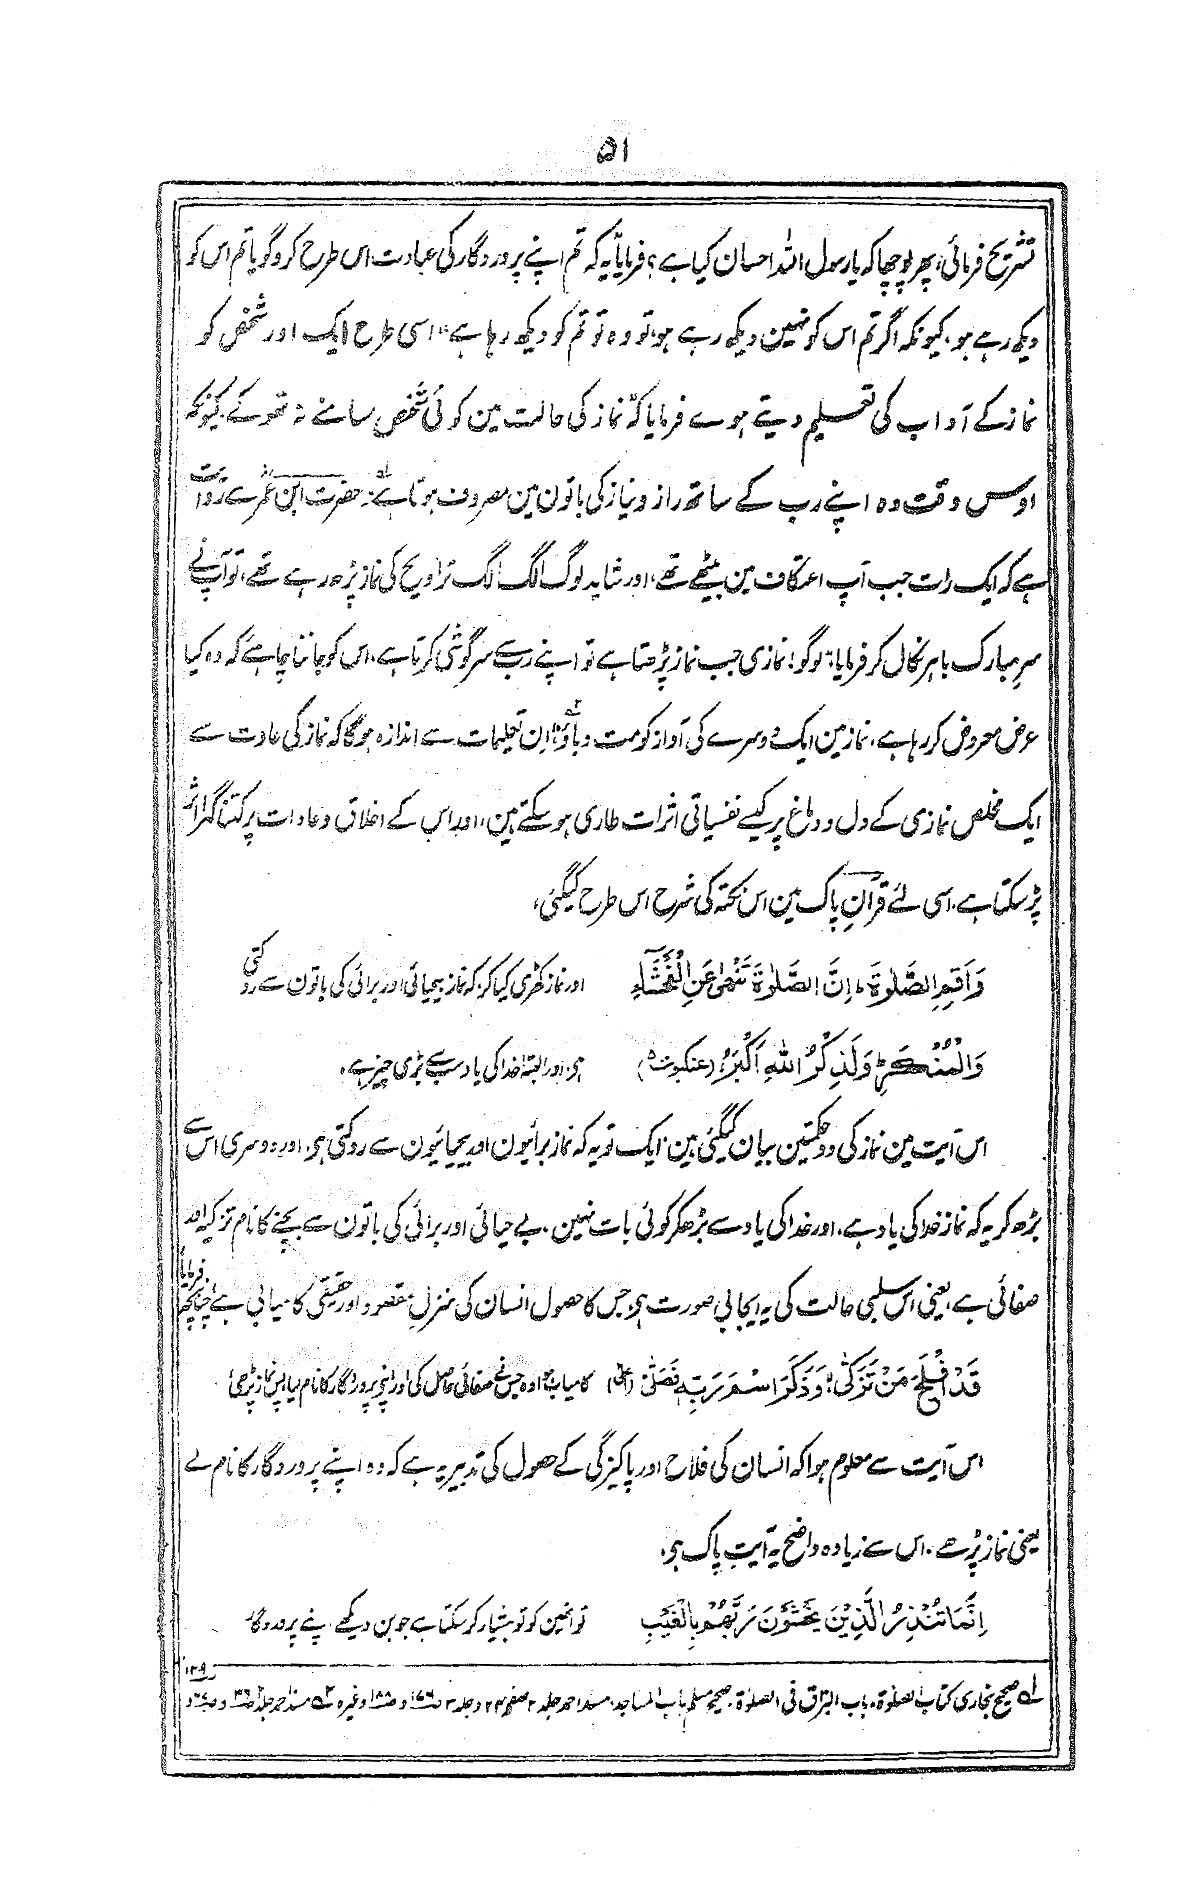 ۵۱
تشریح فرمائی، پھر پوچھا کہ یا رسول اللہ احسان کیا ہے؟ فرمایا یہ کہ تم اپنے پروردگار کی عبادت اس طرح کرو گویا تم اس کو
دیکھ رہے ہو، کیونکہ اگر تم اس کو نہین دیکھ رہے ہو تو وہ تو تم کو دیکھ رہا ہے"، اسی طرح ایک اور شخص کو
نماز کے آداب کی تعلیم دیتے ہوے فرمایا کہ "نماز کی حالت مین کوئی شخص سامنے نہ تھوکے، کیونکہ
اوس وقت وہ اپنے رب کے ساتھ راز و نیاز کی باتون مین مصروف ہوتا ہے"۔ لہ حضرت ابن عمرؓ سے روایت
ہے کہ ایک رات جب آپ اعتکاف مین بیٹھے تھے، اور شاید لوگ الگ الگ تراویح کی نماز پڑھ رہے تھے، تو آپ نے
سر مبارک باہر نکال کر فرمایا: "لوگو! نمازی جب نماز پڑھتا ہے تو اپنے رب سے سرگوشی کرتا ہے، اس کو جاننا چاہئے کہ وہ کیا
عرض معروض کر رہا ہے، نماز مین ایک دوسرے کی آواز کو مت دباؤ" ان تعلیمات سے اندازہ ہوگا کہ نماز کی عادت سے
ایک مخلص نمازی کے دل و دماغ پر کیسے نفسیاتی اثرات طاری ہو سکتے ہین، اور اس کے اخلاق و عادات پر کتنا گہرا اثر
پڑ سکتا ہے، اسی لئے قرآن پاک مین اس نکتہ کی شرح اس طرح کیگئی،
وَاَقِمِ الصَّلٰوةَ، اِنَّ الصَّلٰوةَ تَنْهٰى عَنِ الْفَحْشَآءِ اور نماز کھڑی کیا کر، کہ نماز بیحیائی اور برائی کی باتون سے روکتی
وَالْمُنْكَرِ ط وَلَذِكْرُ اللّٰهِ اَكْبَرُ، (عنکبوت ۵) ہی، اور البتہ خدا کی یاد سب سے بڑی چیز ہے،
اس آیت مین نماز کی دو حکمتین بیان کیگئی ہین، ایک تو یہ کہ نماز برائیون اور بیحیائیون سے روکتی ہی، اور دوسری اس سے
بڑھ کر یہ کہ نماز خدا کی یاد ہے، اور خدا کی یاد سے بڑھکر کوئی بات نہین، بے حیائی اور برائی کی باتون سے بچنے کا نام تزکیہ اور
صفائی ہے، یعنی اس سلبی حالت کی یہ ایجابی صورت ہی، جس کا حصول انسان کی منزل مقصود اور حقیقی کامیابی ہے، چنانچہ فرمایا،
قَدْ اَفْلَحَ مَنْ تَزَكّٰى، وَذَكَرَ اسْمَ رَبِّهٖ فَصَلّٰى (اعلیٰ) کامیاب ہوا وہ جس نے صفائی حاصل کی اور اپنے پروردگار کا نام لیا، پس نماز پڑھی
اس آیت سے معلوم ہوا کہ انسان کی فلاح اور پاکیزگی کے حصول کی تدبیر یہ ہے کہ وہ اپنے پروردگار کا نام لے
یعنی نماز پڑھے، اس سے زیادہ واضح یہ آیت پاک ہی،
اِنَّمَا تُنْذِرُ الَّذِيْنَ يَخْشَوْنَ رَبَّهُمْ بِالْغَيْبِ تو انھین کو تو ہشیار کر سکتا ہے جو بن دیکھے اپنے پروردگار
لہ صحیح بخاری کتاب الصلوٰۃ، باب البزاق فی الصلوٰۃ، صحیح مسلم باب المساجد، مسند احمد جلد ۲ صفحہ ۲۴ و جلد ۳ وغیرہ مسند احمد جلد ۲